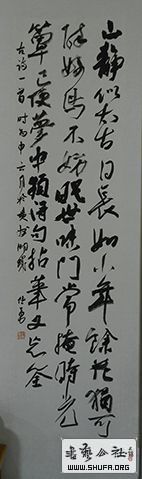 山靜似太古日長如小年餘花猶可
醉好鳥不妨眠世味門常掩時光
簟已便夢中頻得句拈筆又忘筌
古詩一首 時丙申六月於
書藝公社
WWW.SHUFA.ORG